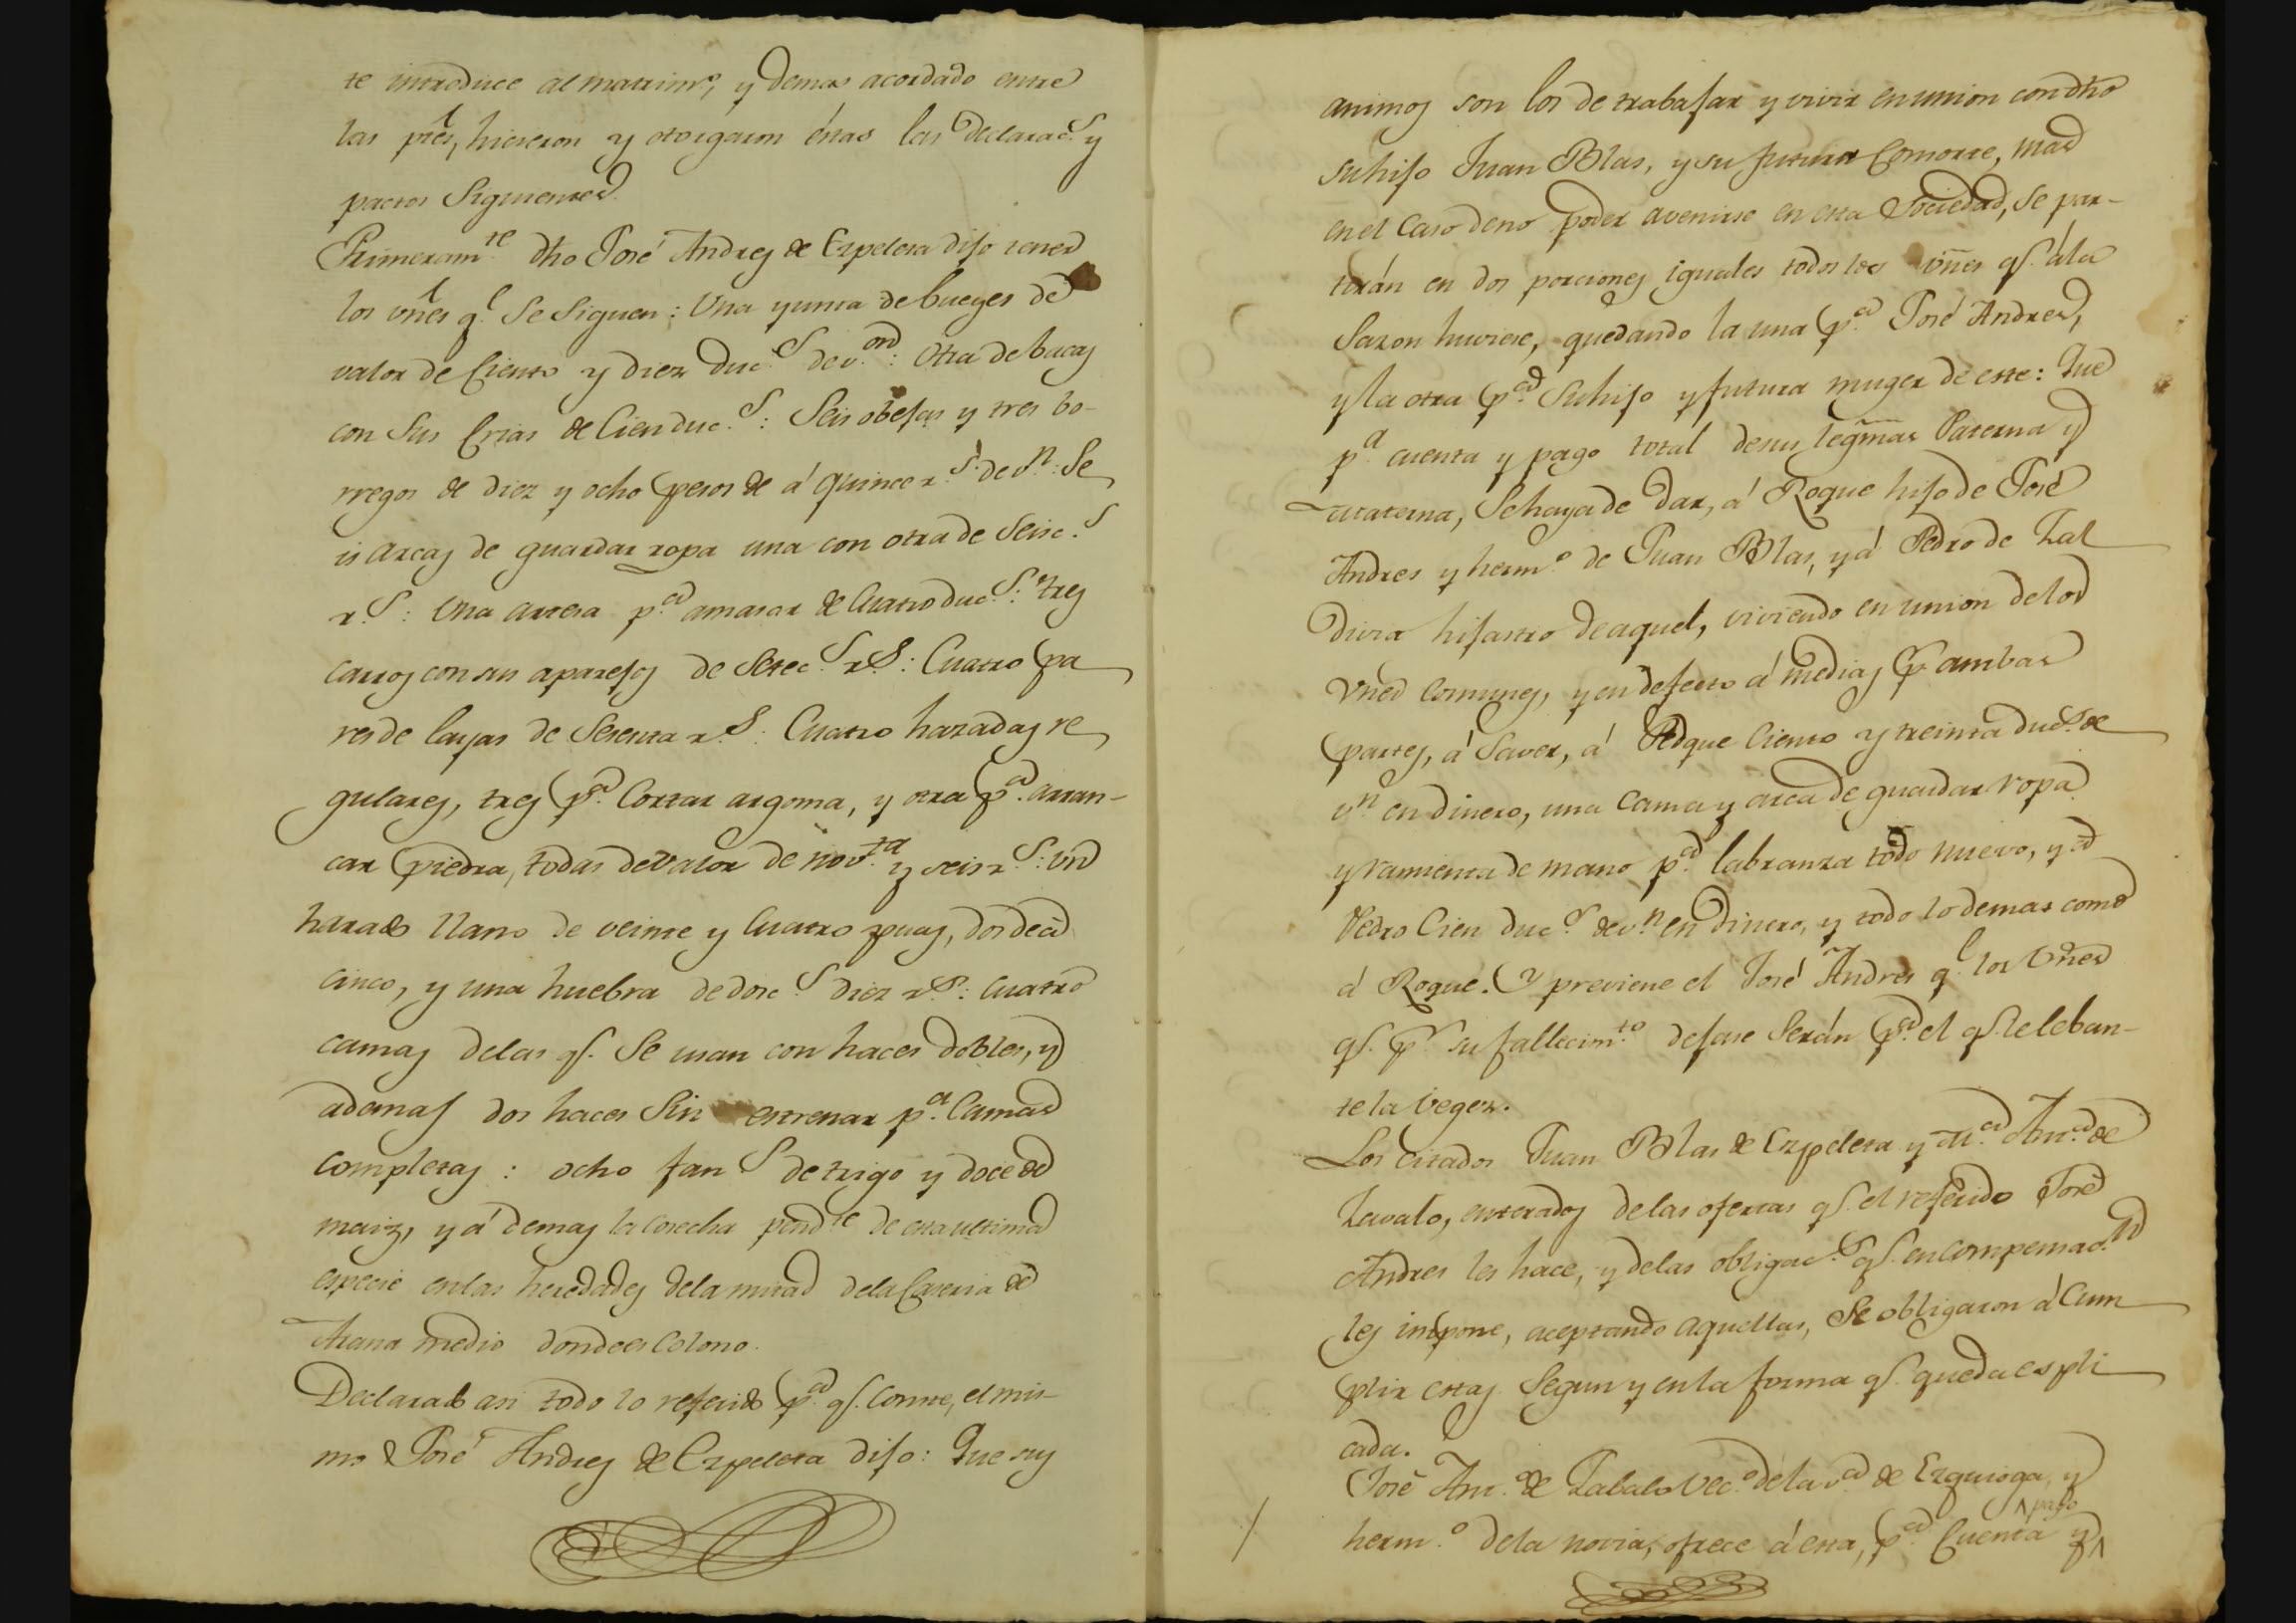 te introduce al matrimº, y demas acordado entre
las ptes, hicieron y otorgaron éstas las declaracs. y
pactos Siguientes.
Primeramte. dho José Andres de Ezpeleta dijo tener
los vnes q.e Se Siguen: Una yunta de bueyes de
valor de Ciento y diez duc.s de v.on: Otra de bacas
con Sus Crias de Cien duc.s: Seis obejas y tres bo-
rregos de diez y ocho pesos de á quince r.s de v.n: Se
is arcas de guardar ropa una con otra de Seisc.s
r.s: Una artesa p.a amasar de Cuatro duc.s: tres
carros con sus aparejos de Setec.s r.s: Cuatro pa
res de layas de Sesenta r.s: Cuatro hazadas re
gulares, tres p.a Cortar argoma, y otra p.a arran-
car piedra, todas de valor de nov.ta y seis r.s: Un
harado llano de veinte y Cuatro puas, dos de á
cinco, y una huebra de dosc.s diez r.s: Cuatro
camas de las q.e Se usan con haces dobles, y
ademas dos haces Sin estrenar p.a Camas
completas: ocho fan.s de trigo y doce de
maiz, y á demas la cosecha pend.te de esta ultima
especie en las heredades de la mitad de la Caseria de
Arana medio donde es Colono.
Declarado asi todo lo referido p.a q.e Conste, el mis-
mo José Andres de Ezpeleta dijo: Que sus
animos son los de trabajar y vivir en union con dho
su hijo Juan Blas, y su futura Consorte, mas
en el Caso de no poder avenirse en esta Sociedad, Se par-
tirán en dos porciones iguales todos los vñes q.e á la
Sazon huviere, quedando la una p.a José Andres,
y la otra p.a Su hijo y futura muger de este: Que
p.a cuenta y pago total de sus legmas Paterna y
Materna, Se haya de dar, á Roque hijo de José
Andres y herm.o de Juan Blas, y á Pedro de Zal
divia hijastro de aquel, viviendo en union de los
Vnes Comunes, y en defecto á medias p.r ambas
partes, á Saver, á Roque Ciento y treinta duc.s de
v.n en dinero, una Cama y arca de guardar ropa
y rramienta de mano p.a labranza todo nuevo, y á
Pedro Cien duc.s de v.n en dinero, y todo lo demas como
á Roque. Y previene el José Andres q.e los Vñes
q.e p.r su fallecim.to dejase Serán p.a el q.e le leban-
te la Vegez.
Los citados Juan Blas de Ezpeleta y M.a Ant.a de
Zavalo, enterados de las ofertas q.e el referido José
Andres les hace, y de las obligac.s q.e en Compensac.n
les impone, aceptando aquellas, Se obligaron á Cum
plir estas Segun y en la forma q.e queda expli
cada.
José Ant.o de Zabalo Vec.o de la v.a de Ezquioga, y
herm.o de la novia, ofrece á esta, p.a Cuenta y ^pago